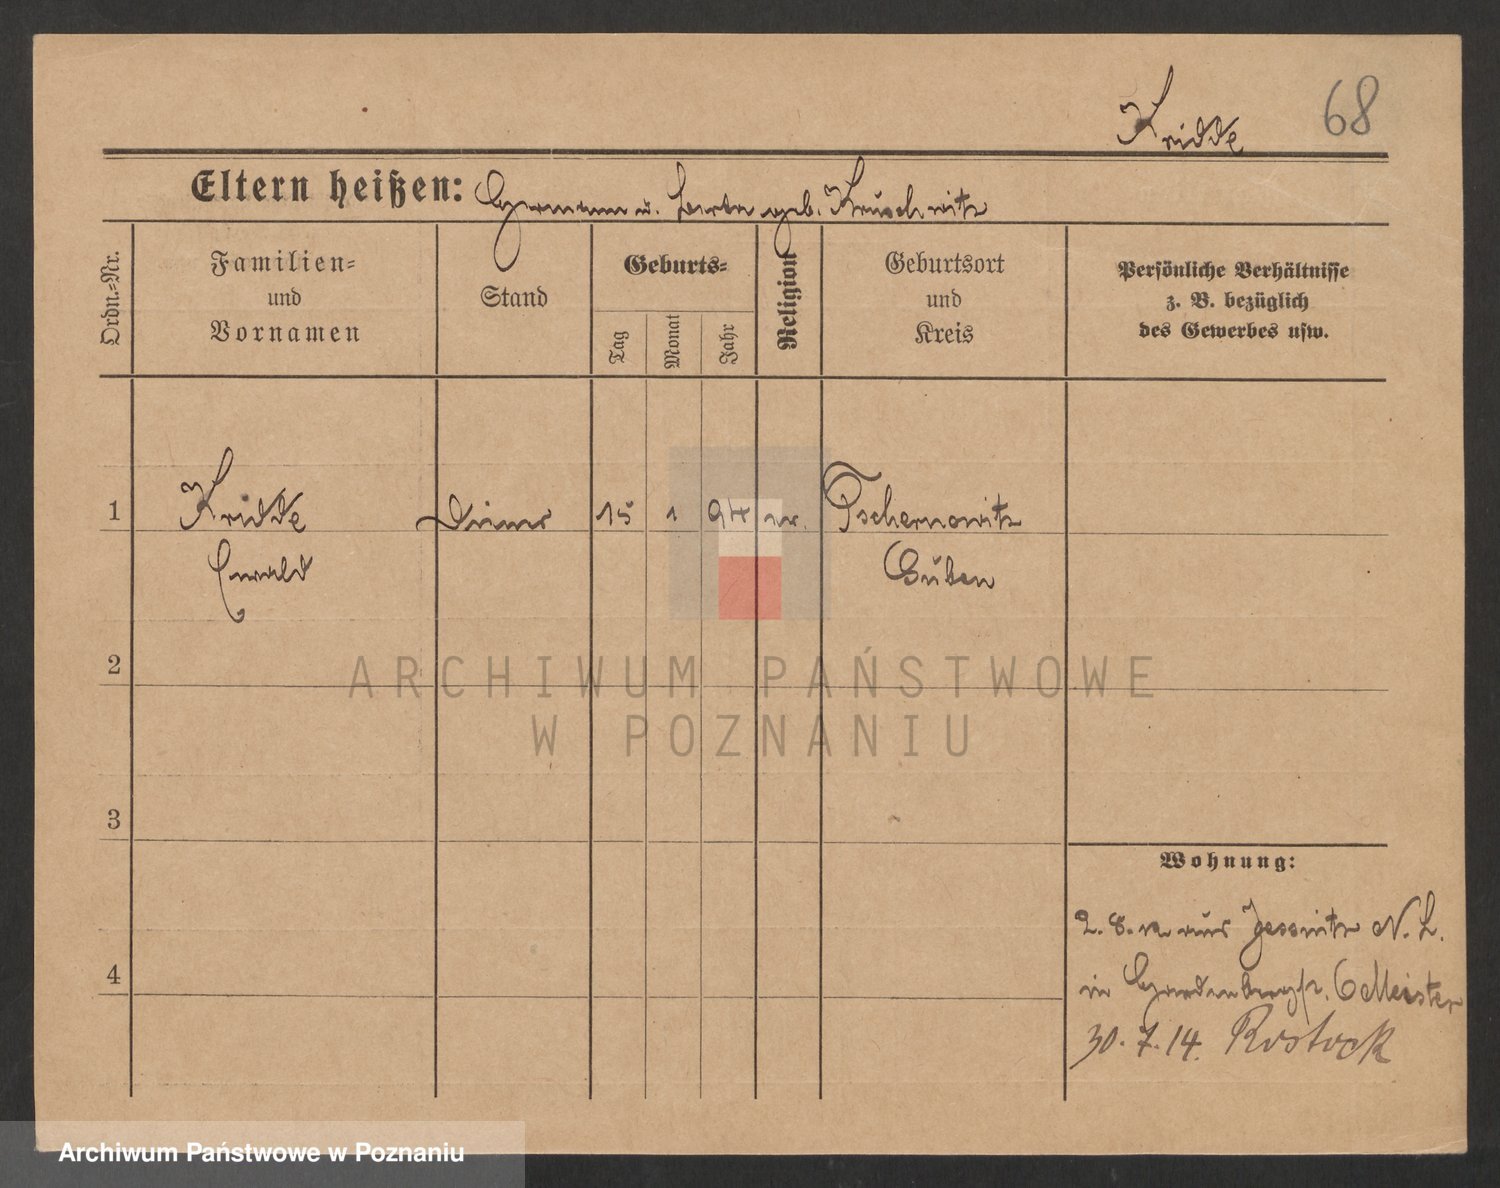 Kridde 68
Eltern heißen: Hermann u. Berta geb. Kruschwitz
Ordn.-Nr.
Familien-
und
Vornamen
Stand
Geburts-
Tag
Monat
Jahr
Religion
Geburtsort
und
Kreis
Persönliche Verhältnisse
z. B. bezüglich
des Gewerbes usw.
1 Kridde Diener 15 1 94 ev. Tschernowitz
Ewald Guben
2
ARCHIWUM PAŃSTWOWE
W POZNANIU
3
4
Wohnung:
2. 8. aus Jessnitz N. L.
in 6 Meister
30. 7. 14. Rostock
Archiwum Państwowe w Poznaniu